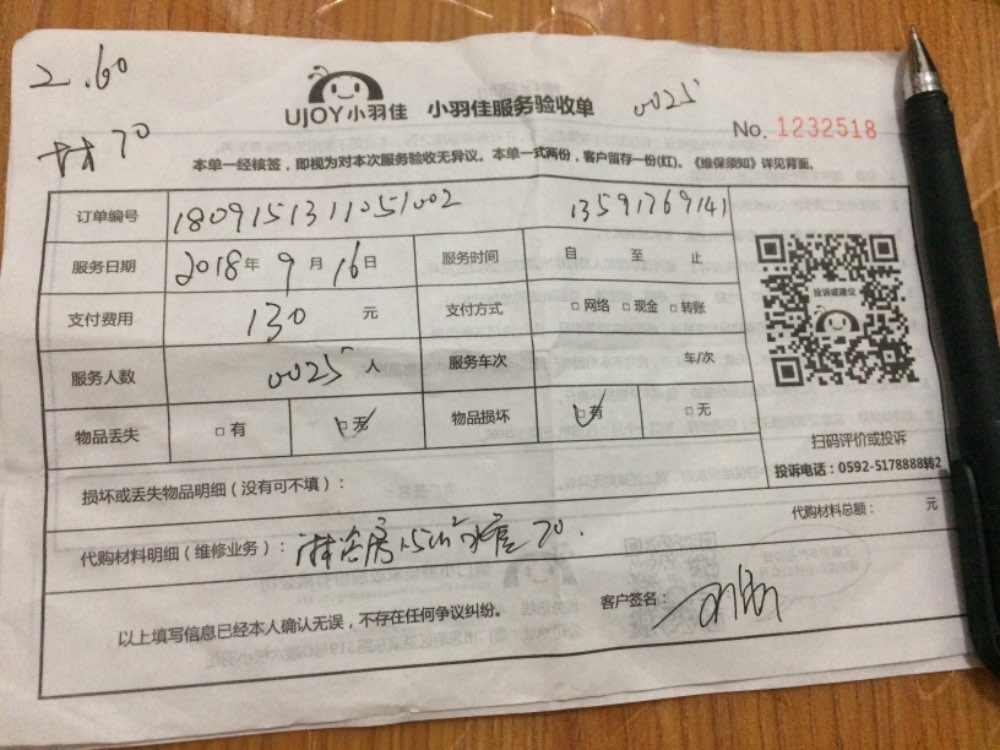 2.60
材70
UJOY小羽佳 小羽佳服务验收单 0025
No. 1232518
本单一经核签，即视为对本次服务验收无异议。本单一式两份，客户留存一份(红)。《维保须知》详见背面。
订单编号 1809151311051002 13591769141
服务日期 2018年9月16日 服务时间 自 至 止
支付费用 130 元 支付方式 □网络 □现金 □转账
服务人数 0025 人 服务车次 车/次
物品丢失 □有 □无 物品损坏 □有 □无
投诉或建议
扫码评价或投诉
投诉电话：0592-5178888转2
损坏或丢失物品明细（没有可不填）：
代购材料总额： 元
代购材料明细（维修业务）：淋浴房 70.
以上填写信息已经本人确认无误，不存在任何争议纠纷。 客户签名：